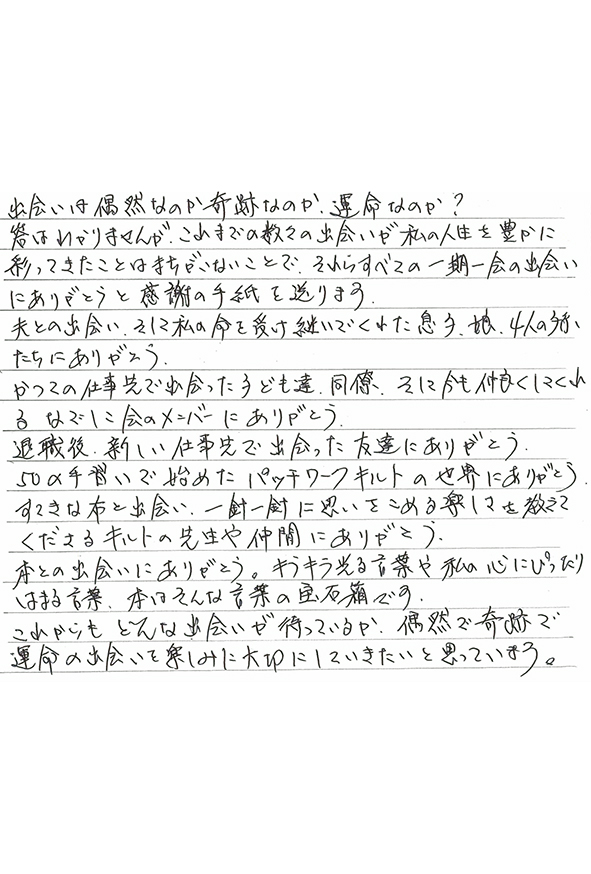 出会いは偶然なのか奇跡なのか、運命なのか？
答はわかりませんが、これまでの数々の出会いが私の人生を豊かに
彩ってきたことはまちがいないことで、それらすべての一期一会の出会い
にありがとうと感謝の手紙を送ります、
夫との出会い、そして私の命を受け継いでくれた息子、娘、4人の孫
たちにありがとう、
かつての仕事先で出会った子ども達、同僚、そして今も仲良くしてくれ
る なでしこ会のメンバーにありがとう、
退職後、新しい仕事先で出会った友達にありがとう、
50の手習いで始めたパッチワークキルトの世界にありがとう、
すてきな布と出会い、一針一針に思いをこめる楽しさを教えて
くださるキルトの先生や仲間にありがとう、
本との出会いにありがとう。キラキラ光る言葉や私の心にぴったり
はまる言葉、本はそんな言葉の宝石箱です、
これからもどんな出会いが待っているか、偶然で奇跡で
運命の出会いを楽しみに大切にしていきたいと思っています。